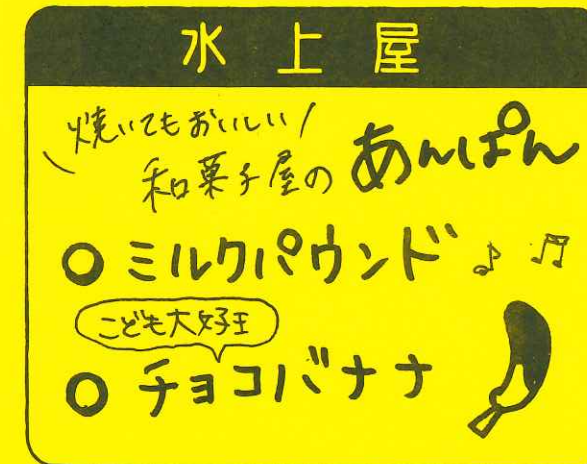 水上屋
焼いてもおいしい
和菓子屋の あんぱん
○ ミルクパウンド♪♬
こども大好王
○ チョコバナナ